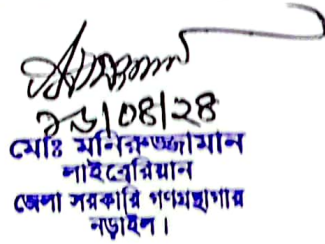 ০৪/২৪
মোঃ মনিরুজ্জামান
লাইব্রেরিয়ান
জেলা সরকারি গণগ্রন্থাগার
নড়াইল।